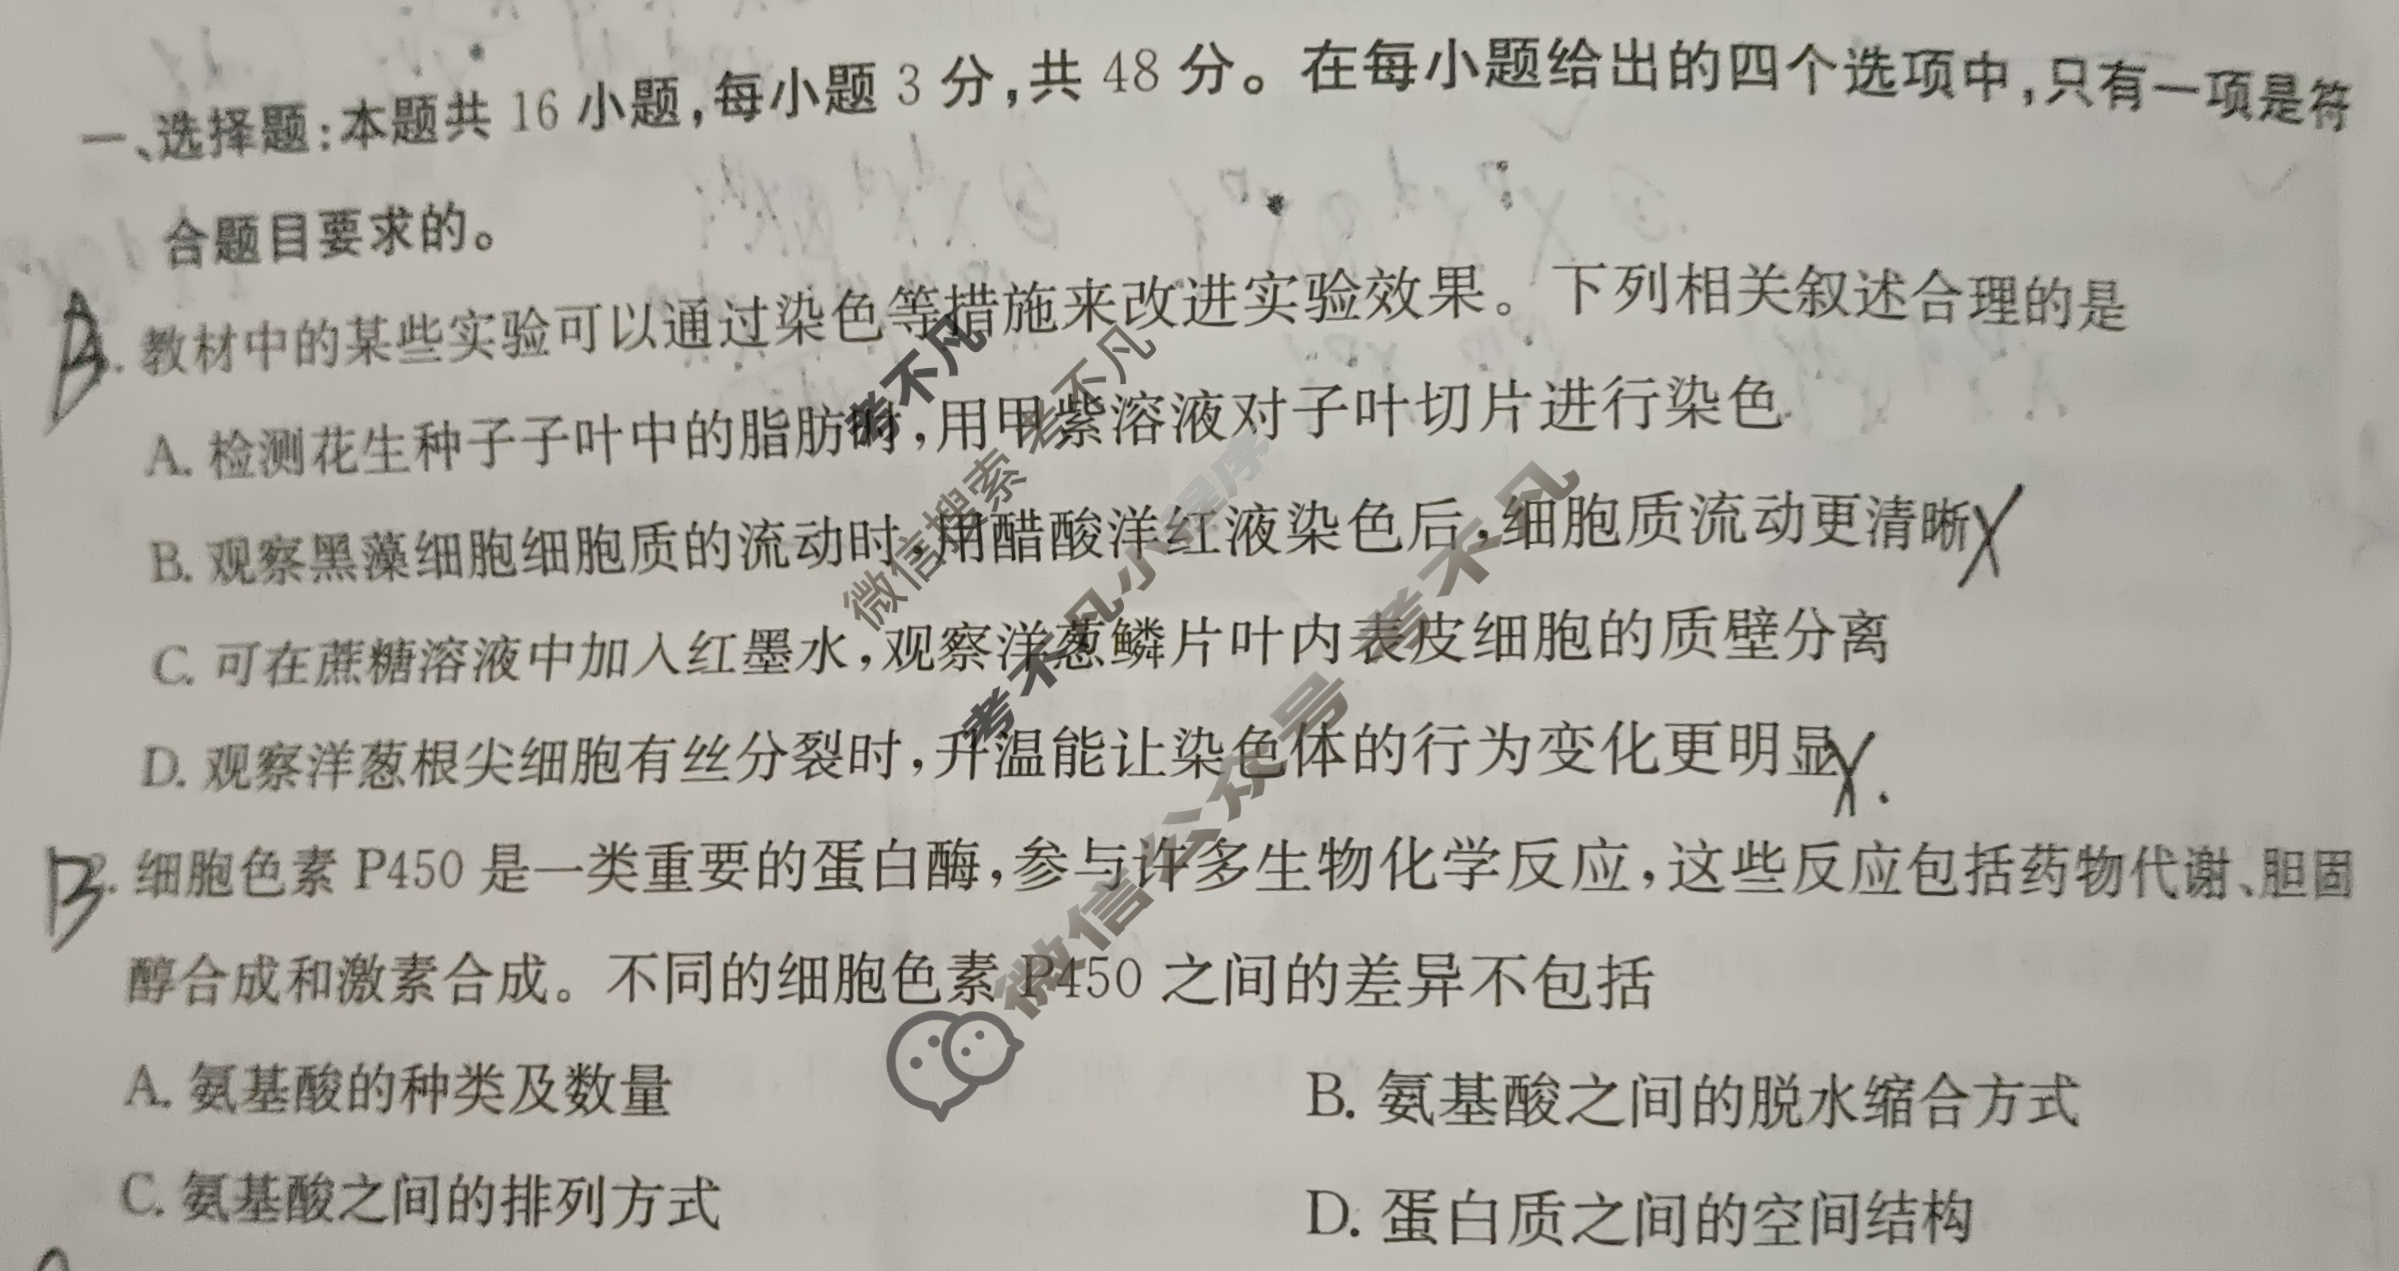 一、选择题:本题共 16 小题,每小题 3 分,共 48 分。在每小题给出的四个选项中,只有一项是符
合题目要求的。
A. 教材中的某些实验可以通过染色等措施来改进实验效果。下列相关叙述合理的是
A. 检测花生种子子叶中的脂肪时,用甲紫溶液对子叶切片进行染色
B. 观察黑藻细胞细胞质的流动时,用醋酸洋红液染色后,细胞质流动更清晰 X
C. 可在蔗糖溶液中加入红墨水,观察洋葱鳞片叶内表皮细胞的质壁分离
D. 观察洋葱根尖细胞有丝分裂时,升温能让染色体的行为变化更明显 X.
B 2. 细胞色素 P450 是一类重要的蛋白酶,参与许多生物化学反应,这些反应包括药物代谢、胆固
醇合成和激素合成。不同的细胞色素 P450 之间的差异不包括
A. 氨基酸的种类及数量
B. 氨基酸之间的脱水缩合方式
C. 氨基酸之间的排列方式
D. 蛋白质之间的空间结构
考不凡
微信搜索 考不凡
考不凡小程序
微信公众号 考不凡